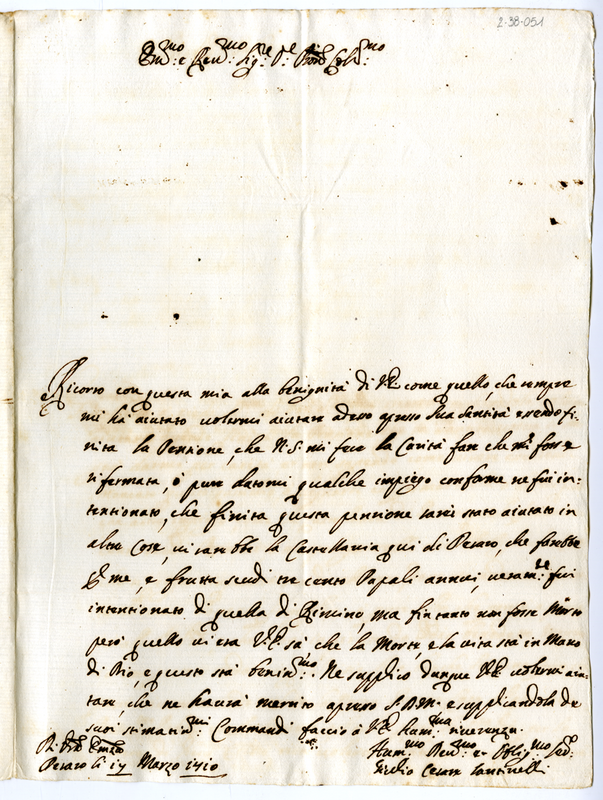 2-38-051
Em.mo e Rev.mo Sig.re P.e Pron Col.mo
Ricorro con questa mia alla benignità di V.E. come quello, che sempre
mi hà aiutato volermi aiutare adesso apresso Sua Santità essendo fi-
nita la Pensione, che N.S. mi fece la Carità fare che mi fosse
rifermata, ò pure datomi qualche impiego conforme ne fui in-
tentionato, che finita questa pensione sarei stato aiutato in
altre Cose, vi sarebbe la Castellania qui di Pesaro, che farebbe
p me, e frutta scudi tre cento Papali annui, veram.te fui
intentionato di quella di Rimino, ma fin tanto non fosse Morto
però quello vi era V.E. sà che la Morte, e la vita stà in Mano
di Dio, e questo stà benin.mo. Ne supplico dunque V.E. volermi aiu-
tare, che ne haurà merito apresso S.D.M. e supplicandola de
suoi stimatis.mi Commandi faccio à V.E. hum.ma riverenza.
Pesaro li 17 Marzo 1710
Hum.mo Dev.mo et Oblig.mo Ser.
Giulio Cesare Santinelli